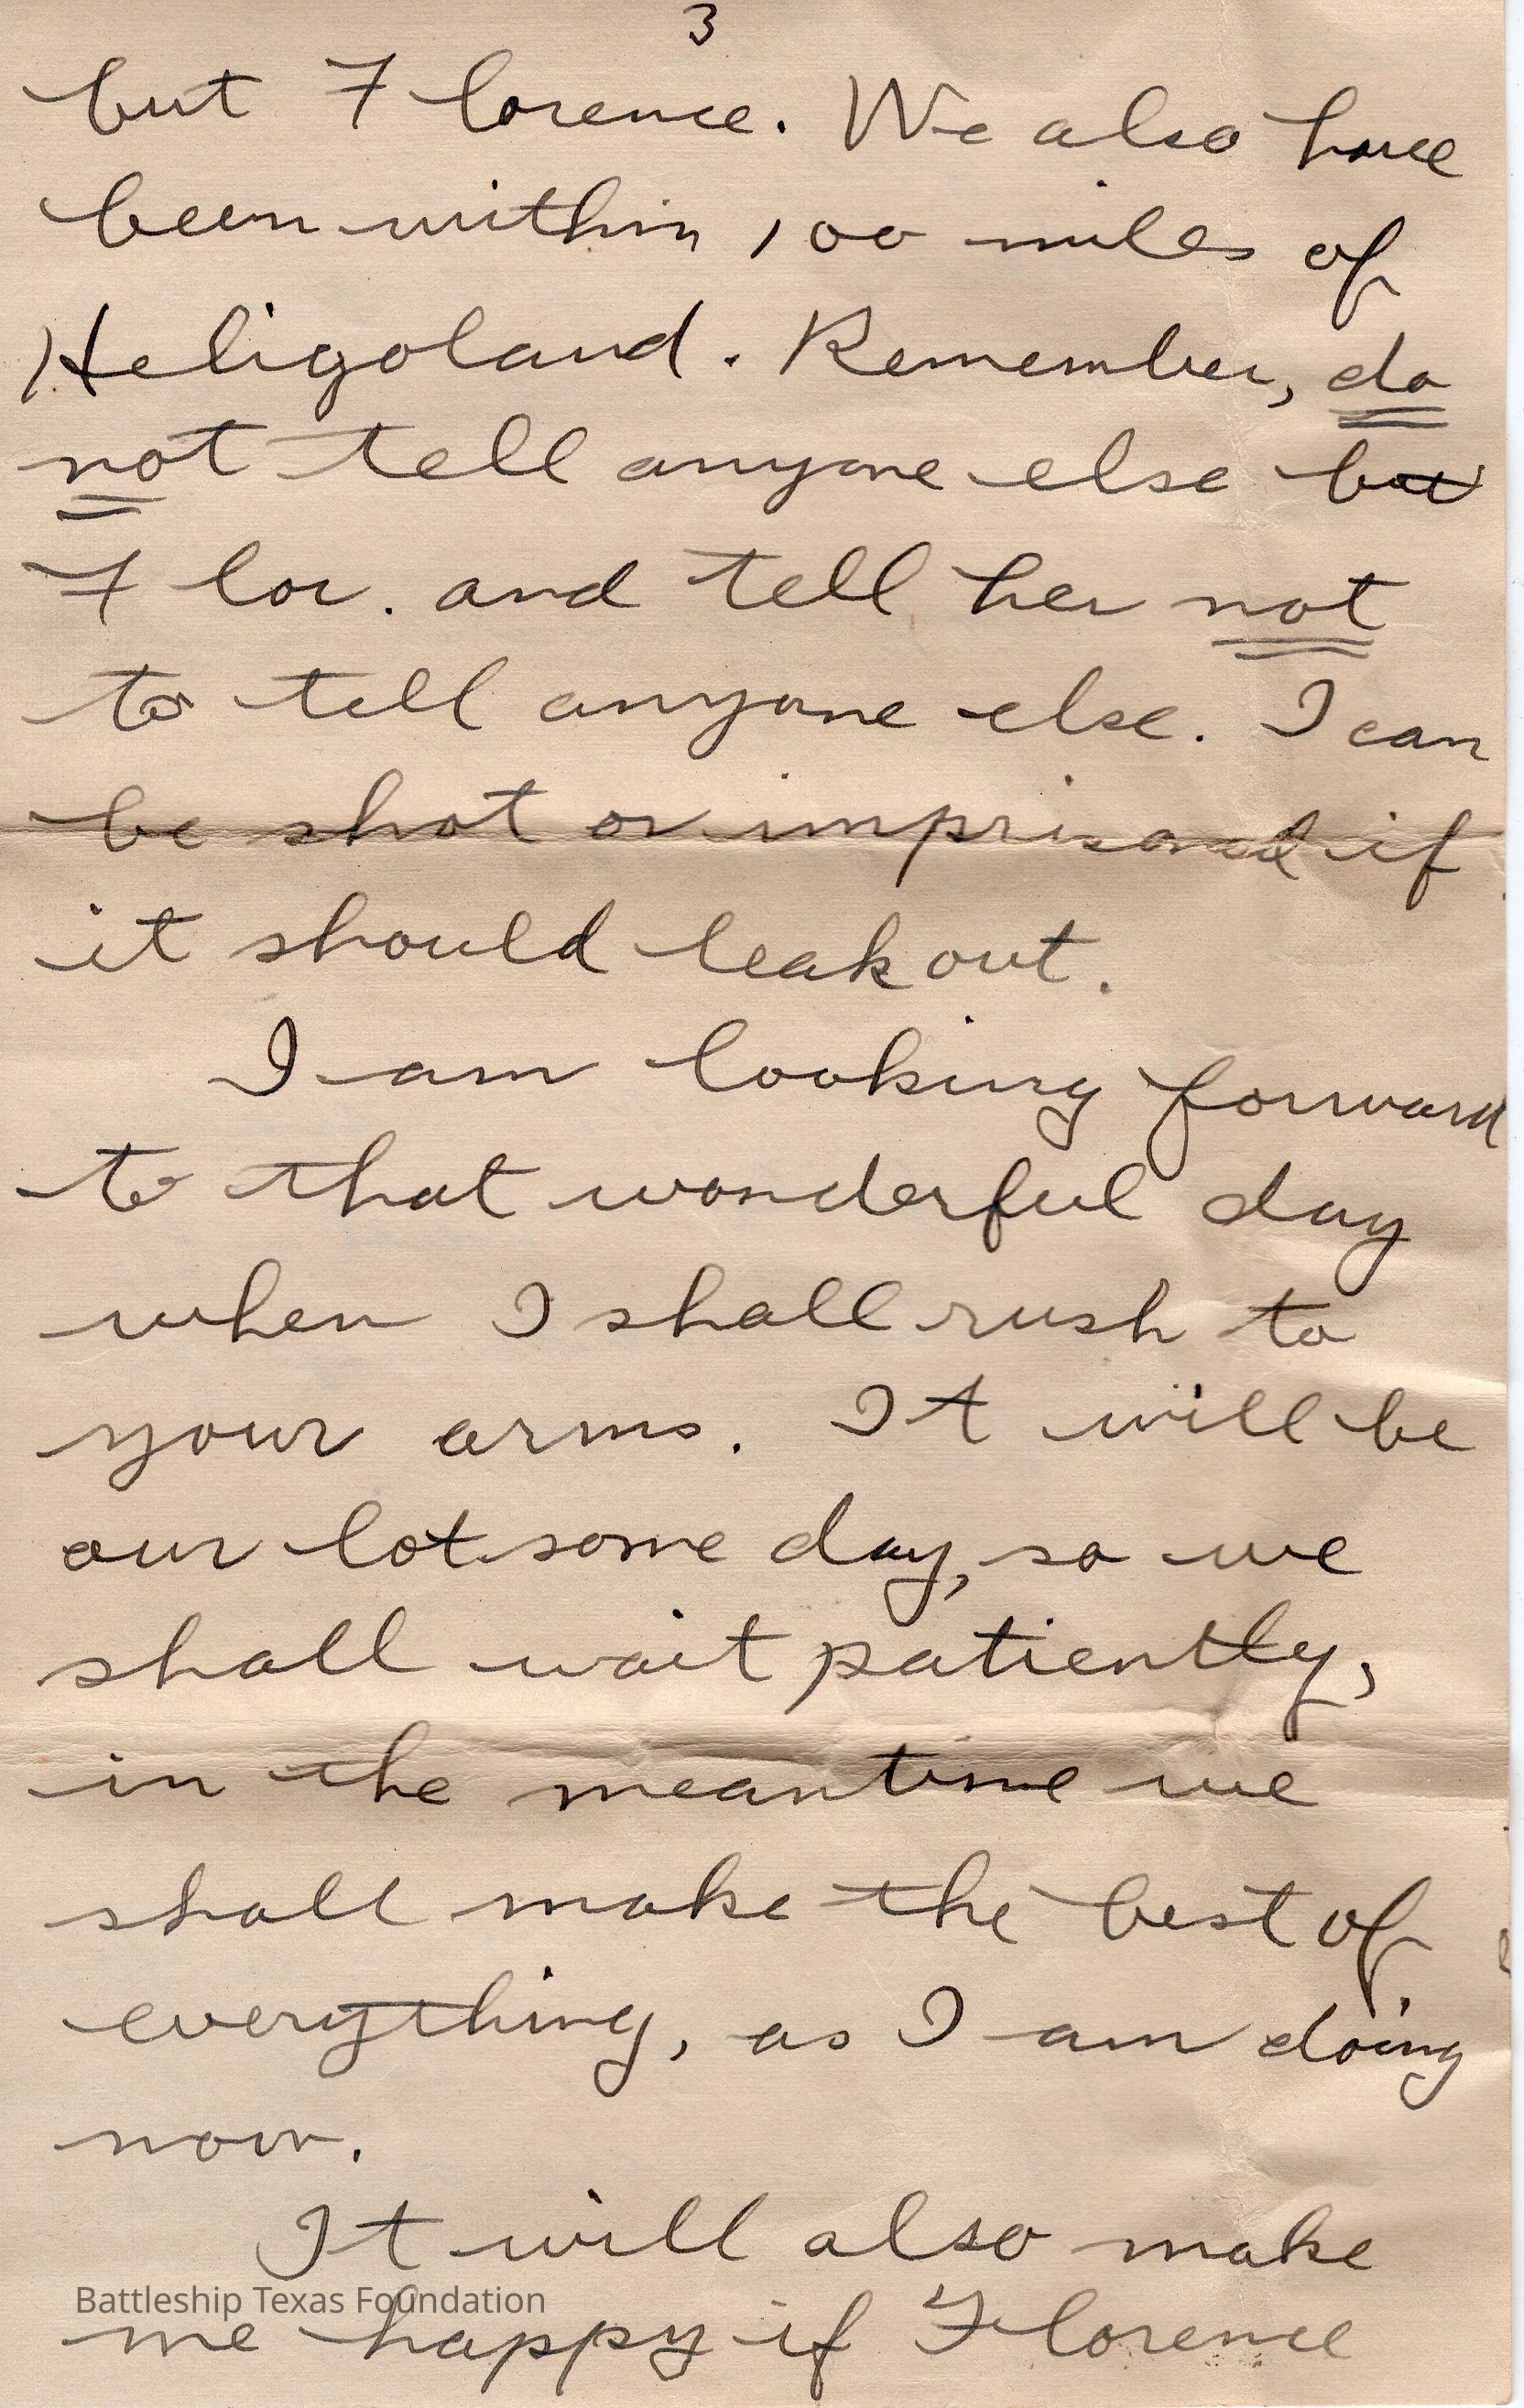 3
but Florence. We also have
been within 100 miles of
Heligoland. Remember, do
not tell anyone else but
Flor. and tell her not
to tell anyone else. I can
be shot or imprisoned if
it should leak out.
I am looking forward
to that wonderful day
when I shall rush to
your arms. It will be
our lot some day, so we
shall wait patiently,
in the meantime we
shall make the best of
everything, as I am doing
now.
It will also make
Battleship Texas Foundation
me happy if Florence